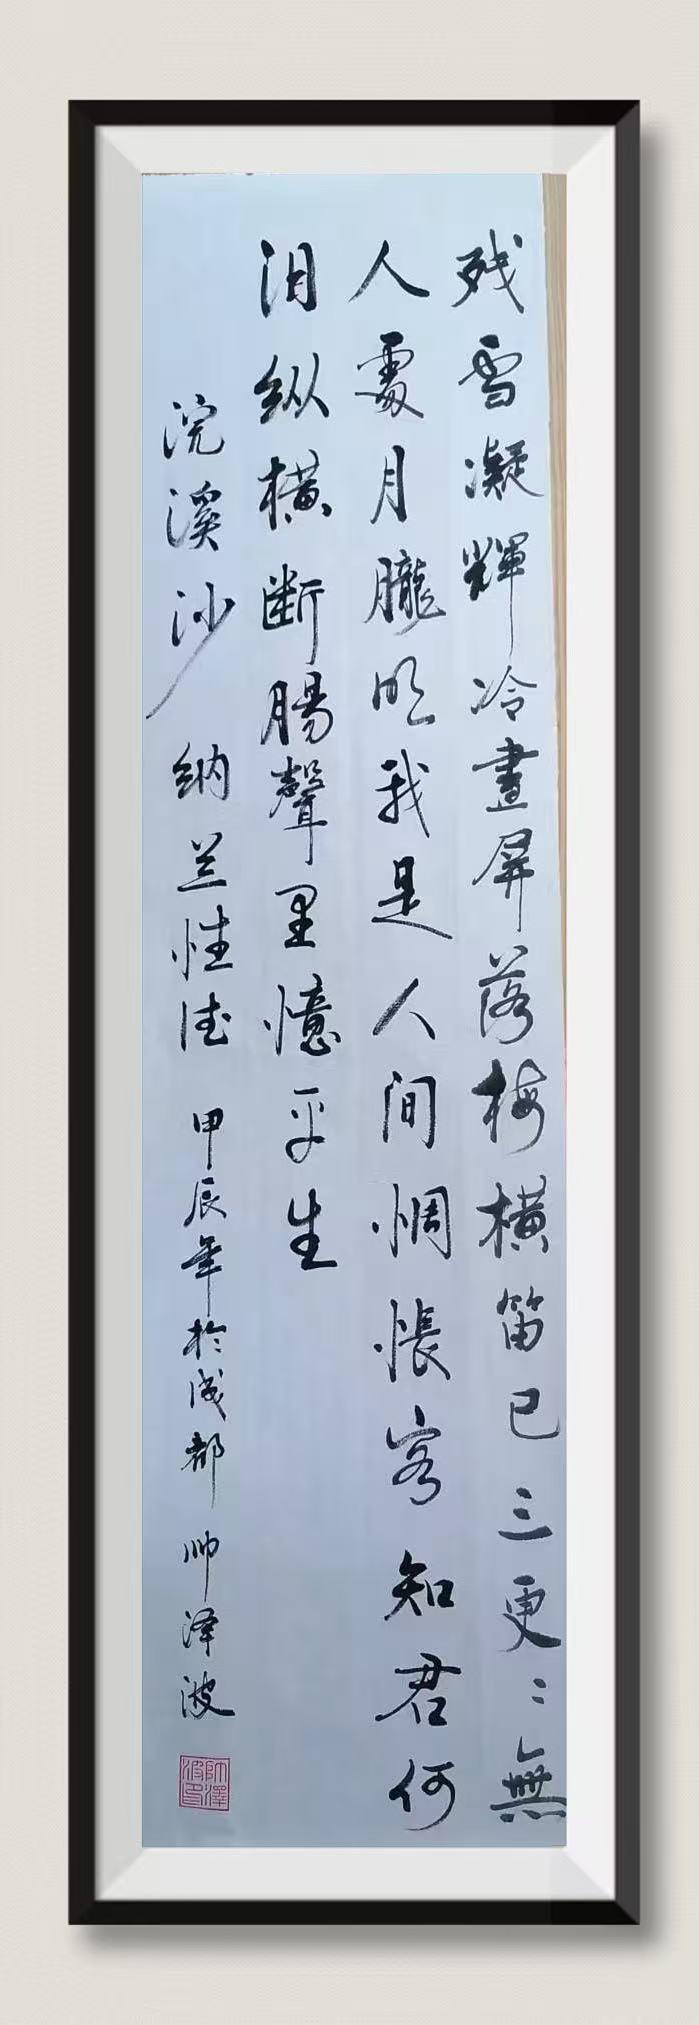 残雪凝輝冷畫屏落梅横笛已三更〻無
人處月朧明我是人间惆悵客知君何
泪纵横断腸聲里憶平生
浣溪沙 纳兰性德 甲辰年於成都 帅泽波
帅澤波印